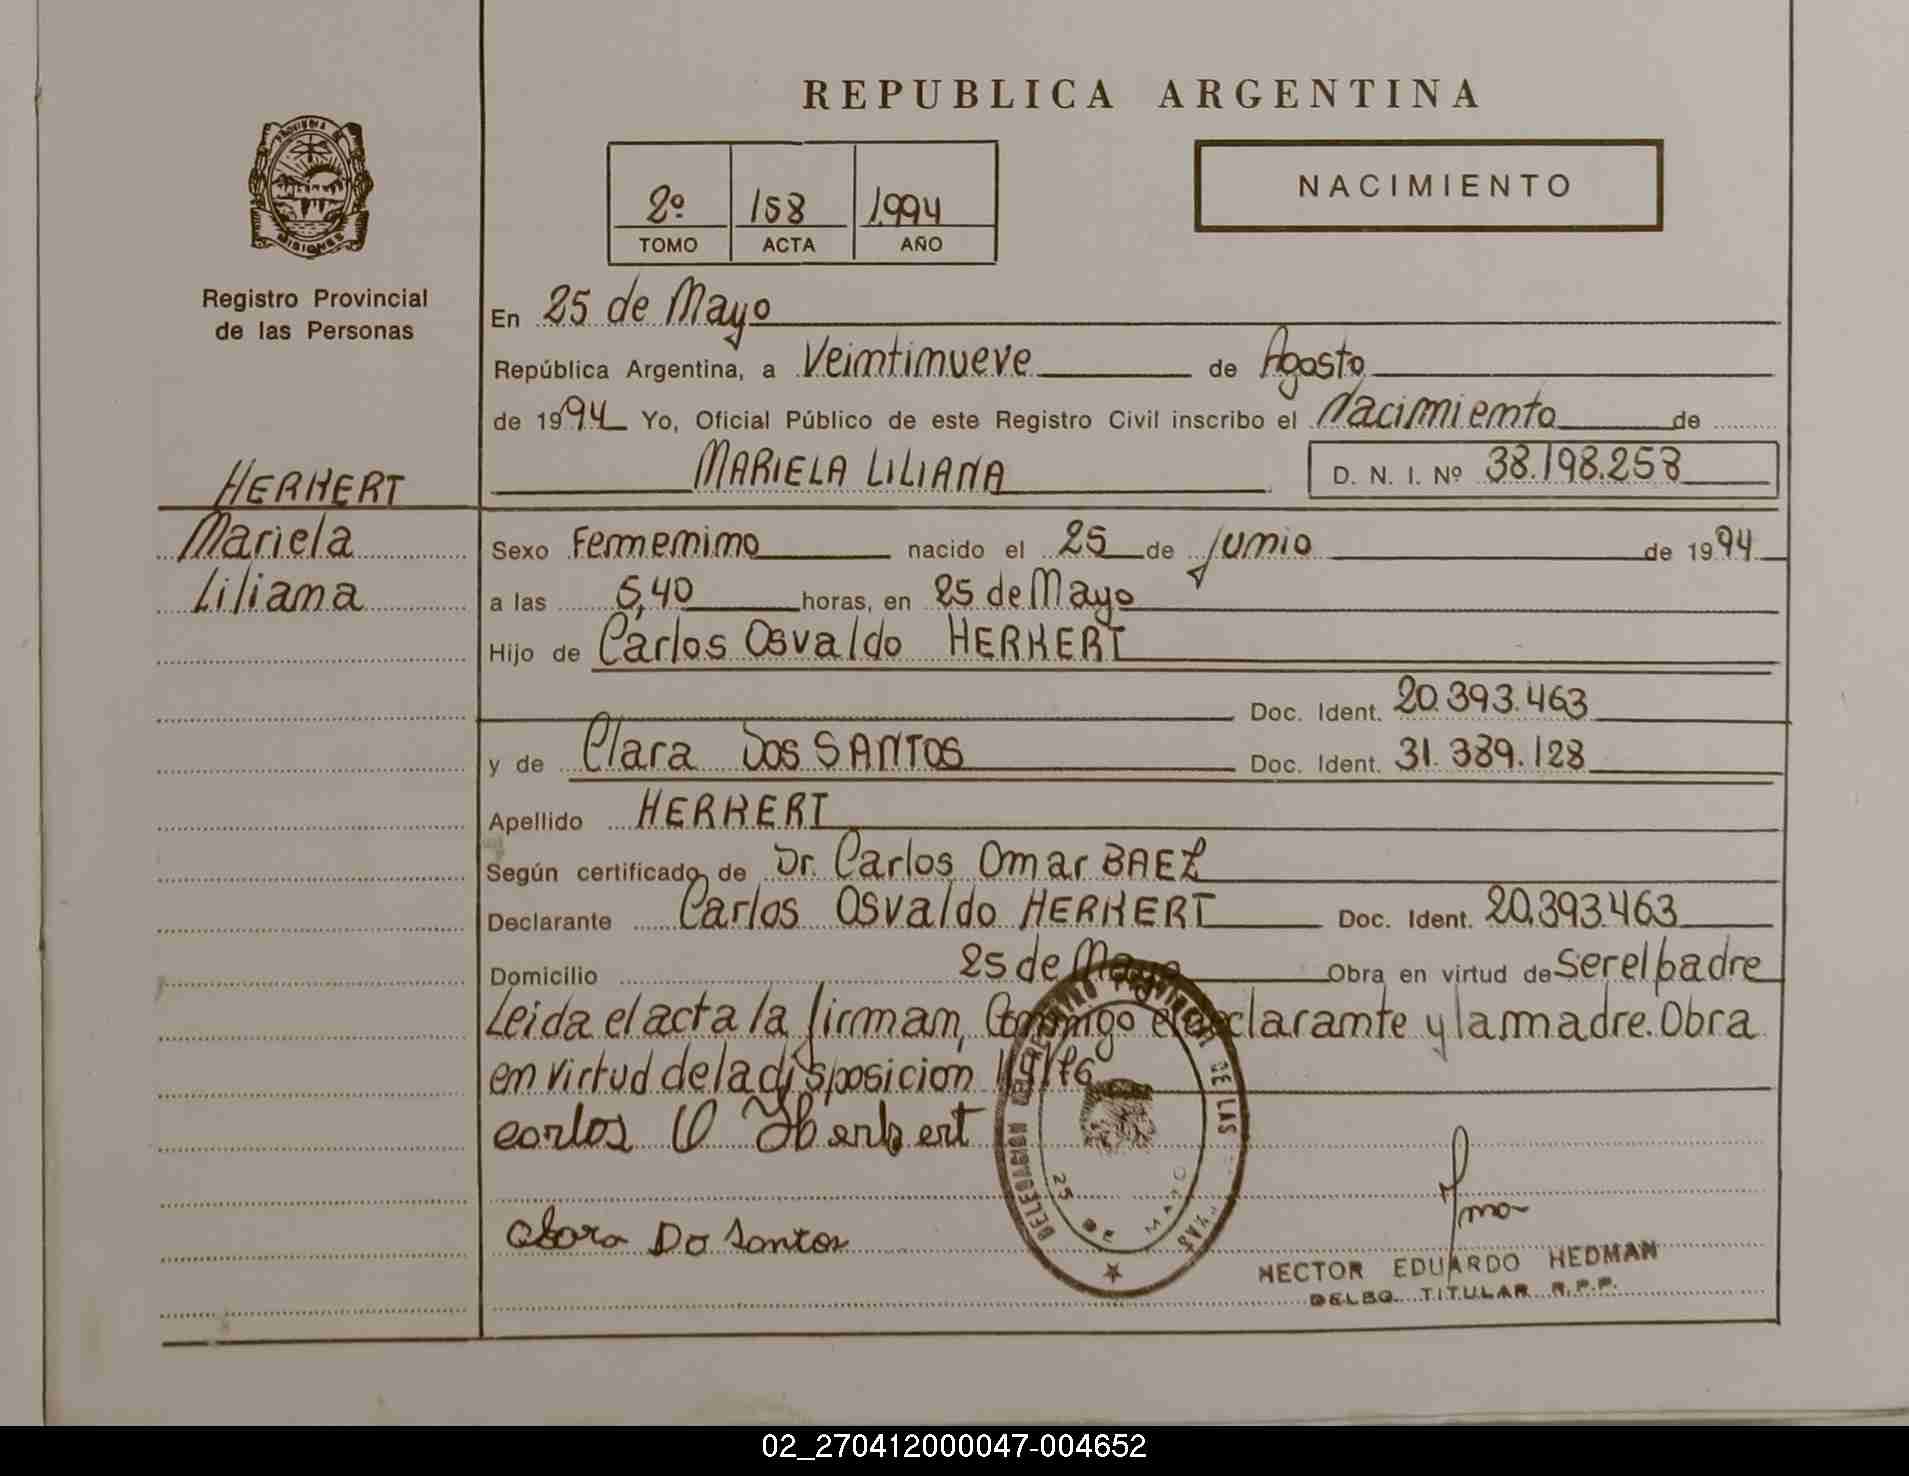 REPUBLICA ARGENTINA
PROVINCIA DE
MISIONES
Registro Provincial
de las Personas
2º 158 1994
TOMO ACTA AÑO
NACIMIENTO
En 25 de Mayo
República Argentina, a Veintinueve de Agosto
de 1994 Yo, Oficial Público de este Registro Civil inscribo el Nacimiento de
MARIELA LILIANA D. N. I. Nº 38.198.258
HERKERT
Mariela
Liliana
Sexo Femenino nacido el 25 de Junio de 1994
a las 5,40 horas, en 25 de Mayo
Hijo de Carlos Osvaldo HERKERT
Doc. Ident. 20.393.463
y de Clara Dos SANTOS Doc. Ident. 31.389.128
Apellido HERKERT
Según certificado de Dr. Carlos Omar BAEZ
Declarante Carlos Osvaldo HERKERT Doc. Ident. 20.393.463
Domicilio 25 de Mayo Obra en virtud de Ser el padre
Leida el acta la firman, Conmigo el declarante y la madre. Obra
en virtud de la disposición
carlos O Herkert
Clara Do Santos
DELEGACION DEL REGISTRO PROVINCIAL DE LAS
25 DE MAYO
HECTOR EDUARDO HEDMAN
DELEG. TITULAR R.P.P.
02_270412000047-004652